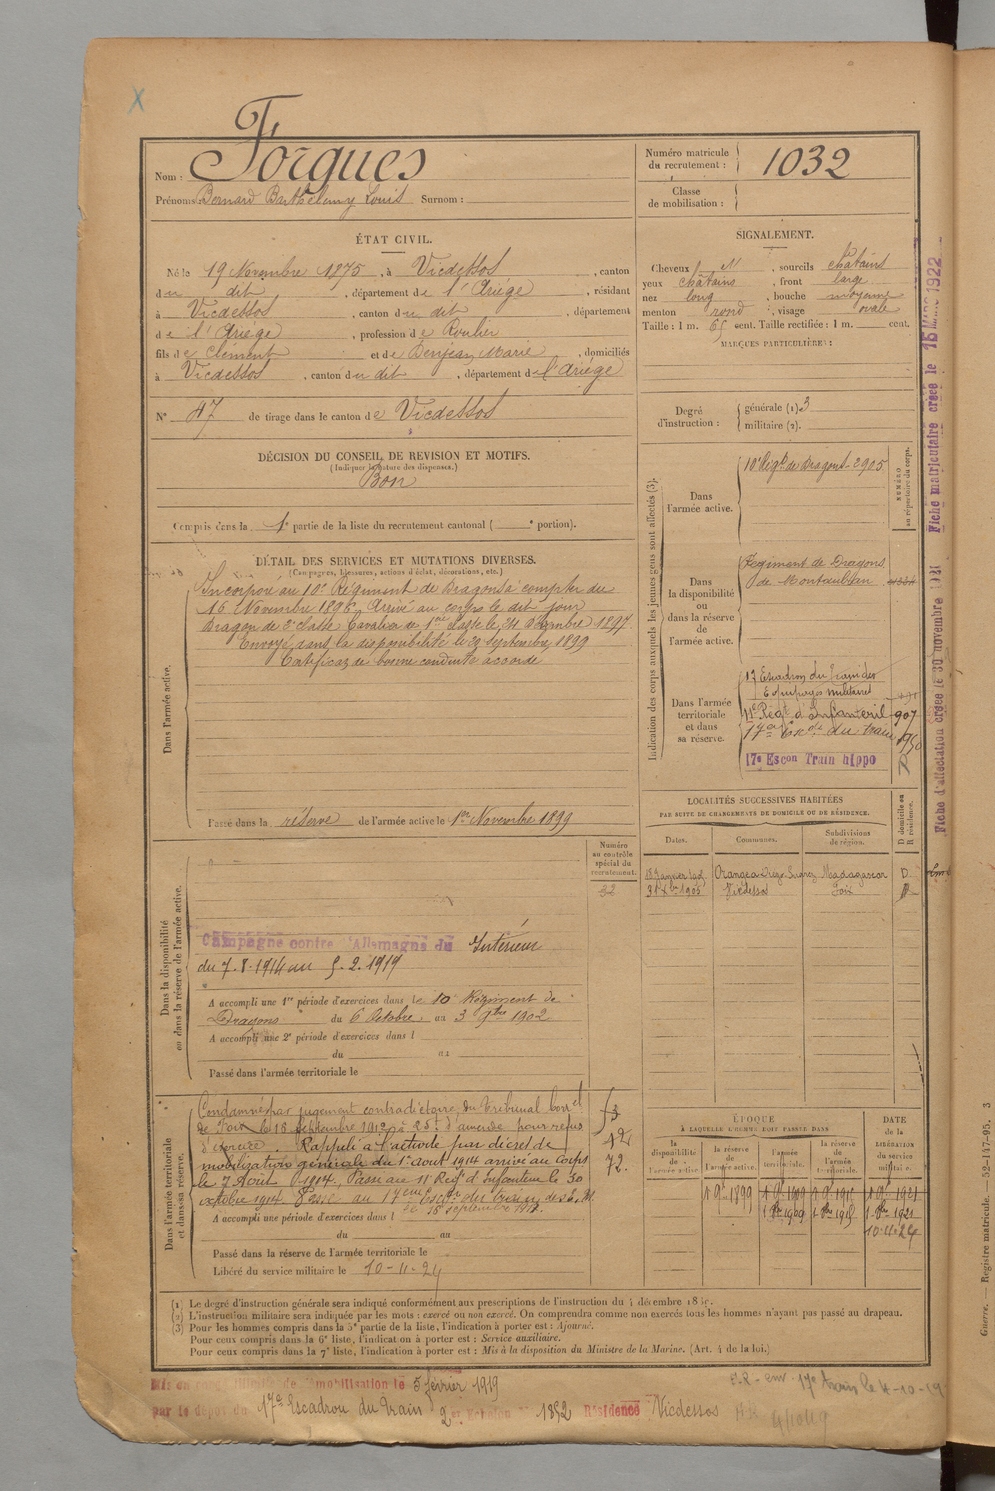 Forgues
Nom :
Prénoms : Bernard Barthelemy Louis Surnom :
Numéro matricule du recrutement : 1032
Classe de mobilisation :
ÉTAT CIVIL.
Né le 19 Novembre 1875, à Vicdessos, canton
du dit, département de l'Ariège, résidant
à Vicdessos, canton du dit, département
de l'Ariège, profession de Roulier
fils de Clément et de Benjean Marie, domiciliés
à Vicdessos, canton du dit, département de l'Ariège
N° 47 de tirage dans le canton de Vicdessos
SIGNALEMENT.
Cheveux N, sourcils châtains
yeux châtains, front large
nez long, bouche moyenne
menton rond, visage ovale
Taille : 1 m. 65 cent. Taille rectifiée : 1 m. cent.
MARQUES PARTICULIÈRES :
Degré d'instruction : générale (1). 3
militaire (2).
DÉCISION DU CONSEIL DE REVISION ET MOTIFS.
(Indiquer la nature des dispenses.)
Bon
Compris dans la 1e partie de la liste du recrutement cantonal ( e portion).
DÉTAIL DES SERVICES ET MUTATIONS DIVERSES.
(Campagnes, blessures, actions d'éclat, décorations, etc.)
Dans l'armée active.
Incorporé au 10e Régiment de Dragons à compter du
16 Novembre 1896. Arrivé au corps le dit jour
Dragon de 2e classe Cavalier de 1ère classe le 31 Décembre 1897.
Envoyé dans la disponibilité le 29 septembre 1899
Certificat de bonne conduite accordé
Passé dans la réserve de l'armée active le 1er Novembre 1899
Indication des corps auxquels les jeunes gens sont affectés (3).
Dans l'armée active.
10e Régt de Dragons 2905
NUMÉRO au répertoire du corps.
Dans la disponibilité ou dans la réserve de l'armée active.
Régiment de Dragons
de Montauban
Dans l'armée territoriale et dans sa réserve.
17 Escadron du Train des
Equipages militaires
11e Régt d'Infanterie 907
17e Escon du train 1950
17e Escon Train hippo R
LOCALITÉS SUCCESSIVES HABITÉES
PAR SUITE DE CHANGEMENTS DE DOMICILE OU DE RÉSIDENCE.
Dates. Communes. Subdivisions de région. D domicile ou R résidence.
Orangea Diégo Suarez Madagascar D
31 Xbre 1905 Vicdessos Foix R
Numéro au contrôle spécial du recrutement.
32
Dans la disponibilité ou dans la réserve de l'armée active.
Campagne contre l'Allemagne du Intérieur
du 7.8.1914 au 5.2.1919
A accompli une 1re période d'exercices dans le 10 Régiment de
Dragons du 6 Octobre au 3 9bre 1902
A accompli une 2e période d'exercices dans l
du au
Passé dans l'armée territoriale le
Dans l'armée territoriale et dans sa réserve.
Condamné par jugement contradictoire du Tribunal Correl
de Foix le 16 septembre 1912 à 25f d'amende pour refus
d'exercice. Rappelé à l'activité par décret de
mobilisation générale du 1er Août 1914 arrivé au corps
le 7 Août 1914. Passé au 11e Régt d'Infanterie le 30
octobre 1914. Passé au 17ème Escon du train des E.M.
le 18 septembre 1917.
A accompli une période d'exercices dans l
du au
Passé dans la réserve de l'armée territoriale le
Libéré du service militaire le 10-11-24
ÉPOQUE
À LAQUELLE L'HOMME DOIT PASSER DANS
la disponibilité de l'armée active.
la réserve de l'armée active.
l'armée territoriale.
la réserve de l'armée territoriale.
DATE de la LIBÉRATION du service militaire.
1 9e 1899 1 9e 1909 1 9e 1915 1 9e 1921
10-11-24
(1) Le degré d'instruction générale sera indiqué conformément aux prescriptions de l'instruction du 4 décembre
(2) L'instruction militaire sera indiquée par les mots : exercé ou non exercé. On comprendra comme non exercés tous les hommes n'ayant pas passé au drapeau.
(3) Pour les hommes compris dans la 5e partie de la liste, l'indication à porter est : Ajourné.
Pour ceux compris dans la 6e liste, l'indication à porter est : Service auxiliaire.
Pour ceux compris dans la 7e liste, l'indication à porter est : Mis à la disposition du Ministre de la Marine. (Art. 4 de la loi.)
Mis en congé illimité de démobilisation le 5 février 1919
par le dépôt du 17e Escadron du Train 2e Echelon 1892 Résidence Vicdessos
17e train le 4-10-19
Fiche d'affectation créée le 30 novembre 1921 Fiche matriculaire créée le 16 MARS 1922
Guerre. — Registre matricule. — 52-147-95. 3